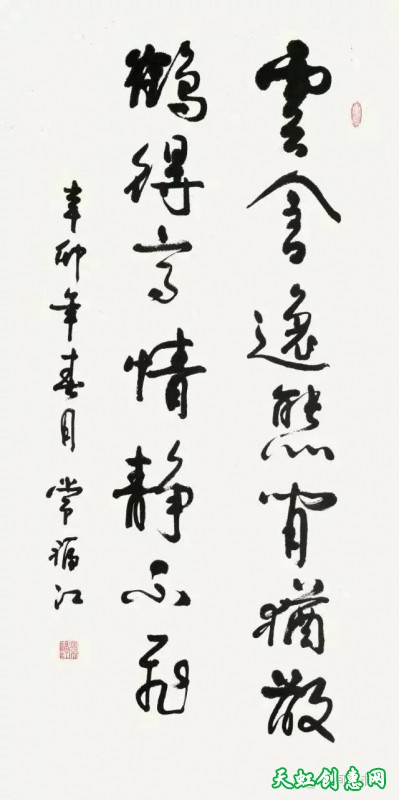 雲含逸態閒猶散
鶴得高情静不飛
辛卯年春月 常福江
天虹创惠网